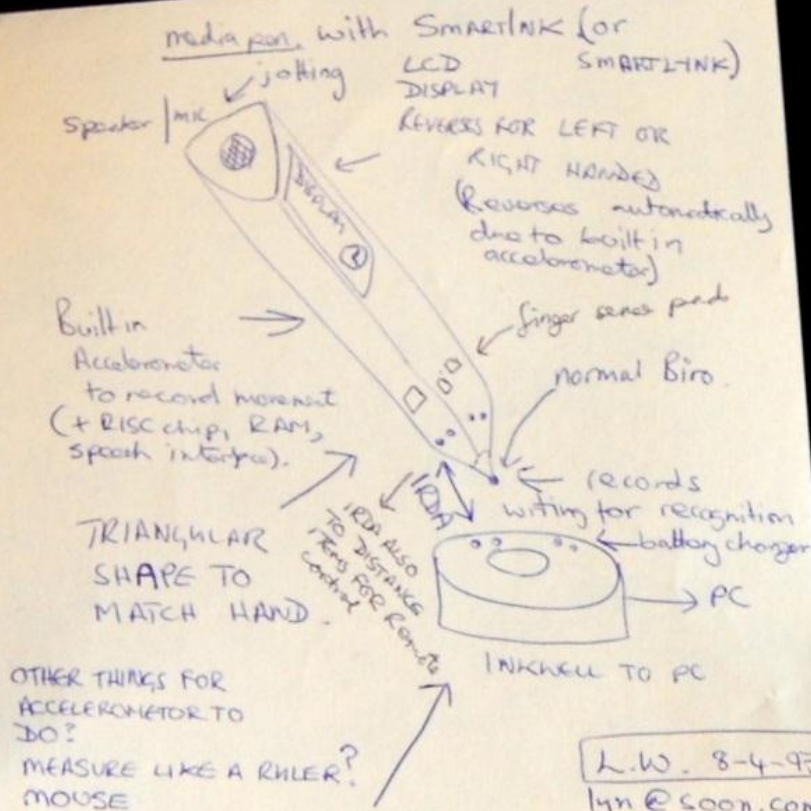 media pen. with SMARTINK (or
SMARTLINK)
jotting
Speaker/mic
LCD
DISPLAY
REVERSES FOR LEFT OR
RIGHT HANDED
(Reverses automatically
due to built in
accelerometer)
DISPLAY
finger sense pads
normal Biro.
Built in
Accelerometer
to record movement
(+ RISC chip, RAM,
speech interface).
records
writing for recognition
battery charger
IRDA
IRDA ALSO
TO DISTANCE
ITEMS FOR Remote
control
TRIANGULAR
SHAPE TO
MATCH HAND.
PC
INKWELL TO PC
OTHER THINGS FOR
ACCELEROMETOR TO
DO?
MEASURE LIKE A RULER?
MOUSE
L.W. 8-4-93
lyn@soon.com